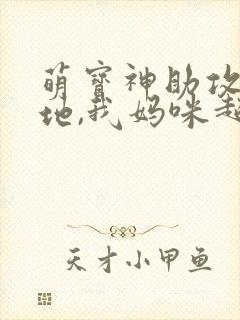 萌宝神助攻
地,我妈咪超
天才小甲鱼